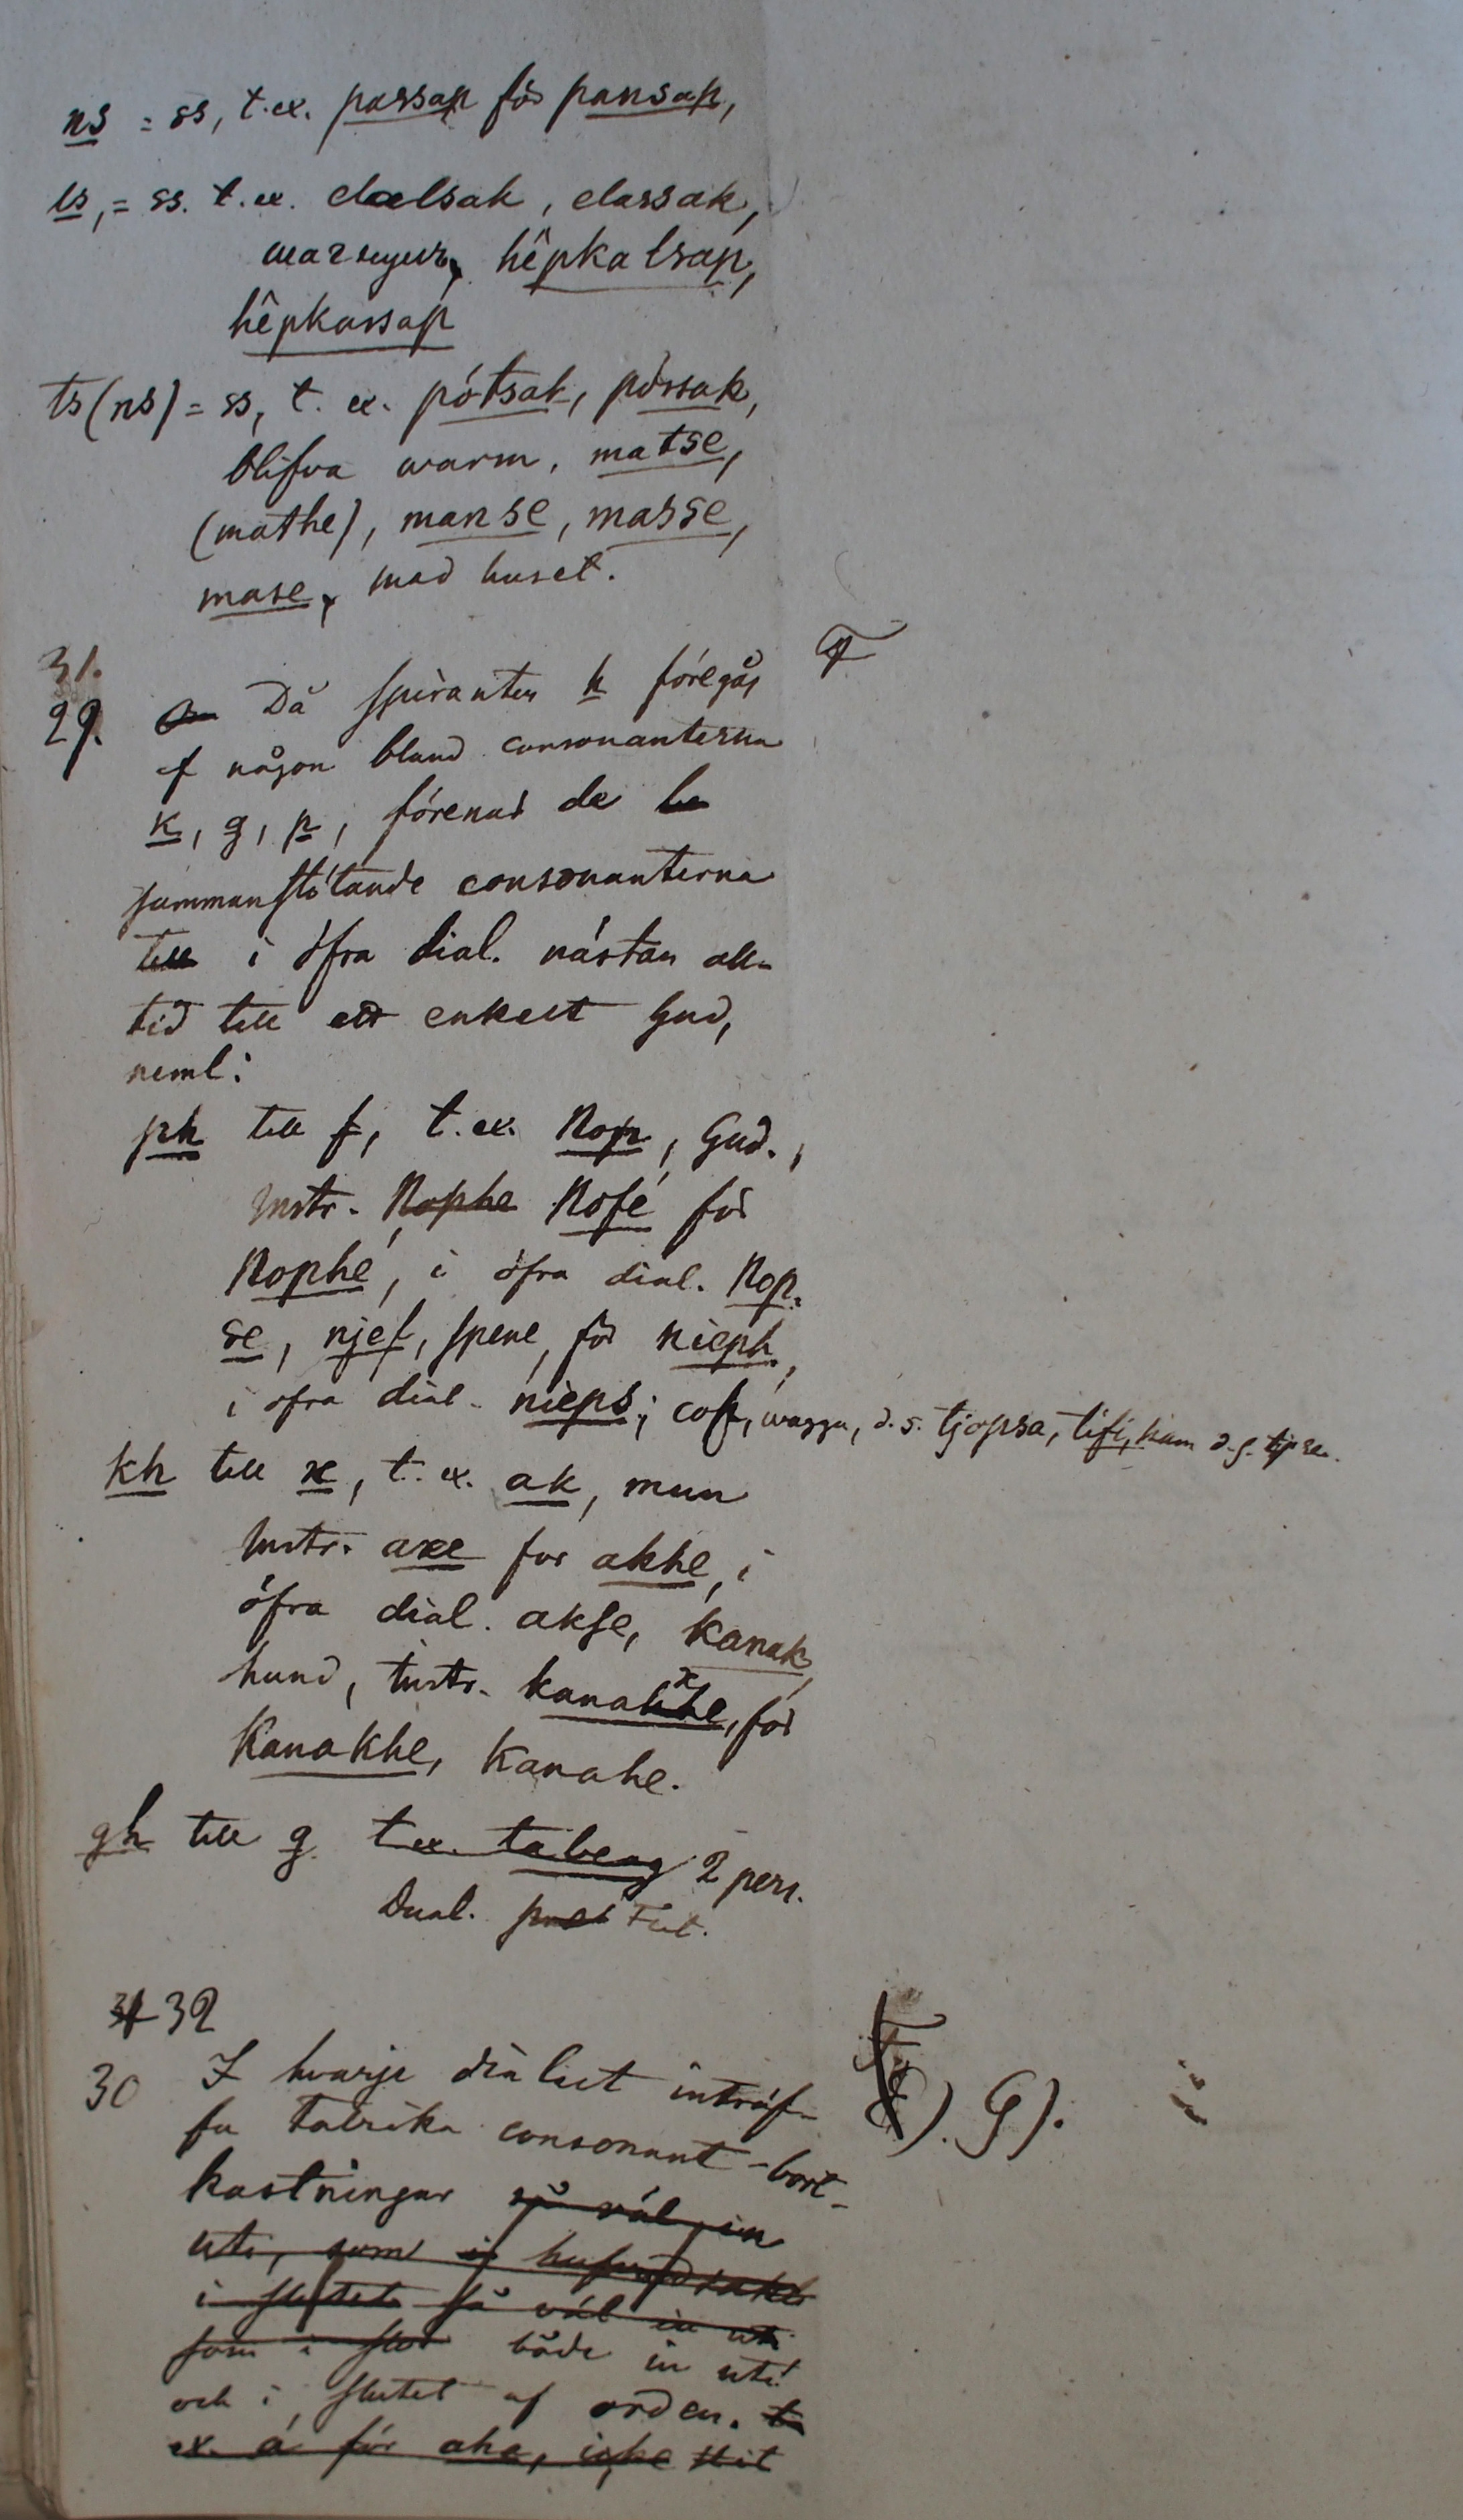 ns = ss, t.ex. passap för pansap,
ls, = ss. t.ex. elælsak, elassak,
hêpkalsap,
hêpkassap
ts (ns) = ss, t. ex. pótsak, póssak,
blifva warm, matse,
(mathe), manse, masse,
mase, mad huset.
31.
29. Då spiranten h föregås
af någon bland consonanterna
k, g, p, förenas de
sammanstötande consonanterna
till i öfra dial. nästan all-
tid till ett enkelt ljud,
neml:
ph till f, t.ex. Nop, Gud.,
Instr. Nophe Nofé för
Nophé, i öfra dial. Nop-
se, njef, spene, för nieph,
i öfra dial. nieps; cof, wagga, d. ö. tjopsa, tifi, kam d. ö. tipse.
kh till x, t. ex. ak, mun
Instr. axe for akhe, i
öfra dial. akse, kanak,
hund, instr. kanakhe, för
x
Kanakhe, Kanahe.
gh till g t.ex. tabeag 2 pers.
Dual. Fut.
31 32
30 I hvarje dialect inträf-
fa talrika consonant-bort-
kastningar så väl in
uti, som i hufvudsaken
i slutet så väl in uti
som i slut både in uti
och i slutet af orden. t.
ex. á för aha, icke
G).